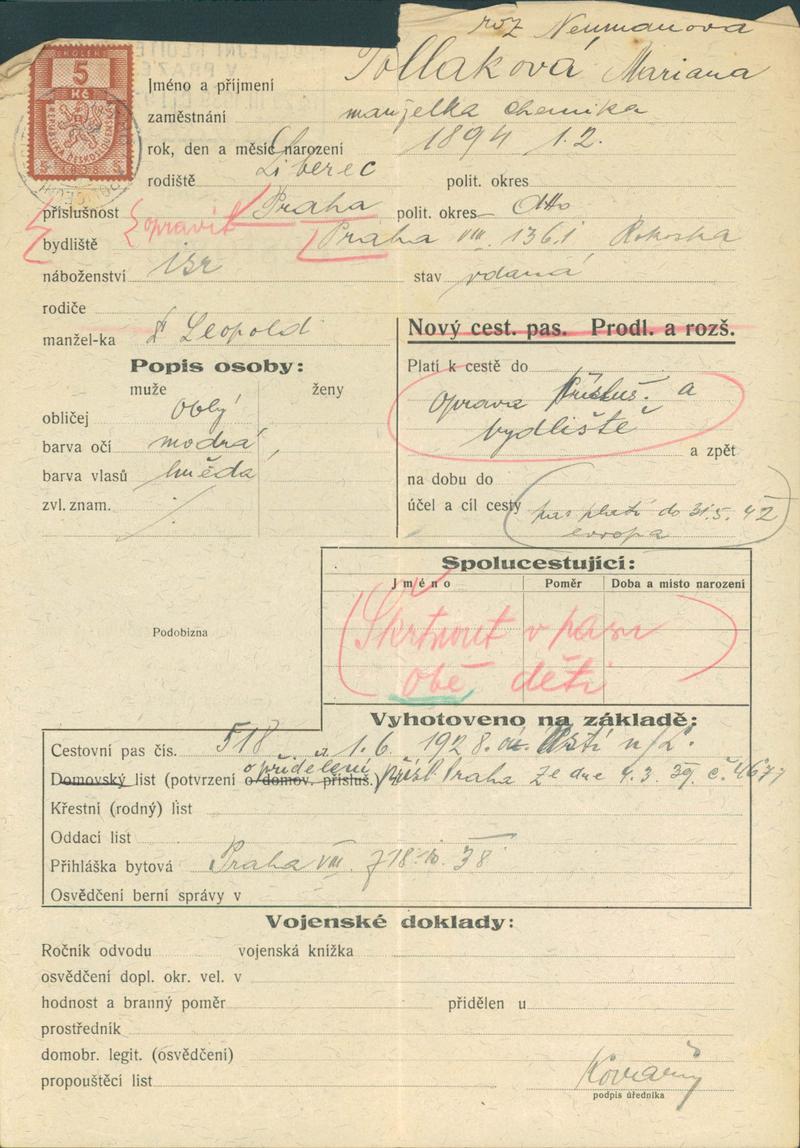 roz Neumanova
KOLEK
5
Kč
REPUBLIKA ČESKOSLOVENSKÁ
Jméno a příjmení Pollaková Mariana
zaměstnání manželka chemika
rok, den a měsíc narození 1894 1.2.
rodiště Liberec polit. okres
příslušnost opravit Praha polit. okres dtto
bydliště Praha VIII. 1361 Rokoska
náboženství izr stav vdaná
rodiče
manžel-ka Leopold
Nový cest. pas. Prodl. a rozš.
Popis osoby:
muže ženy
obličej oblý
barva očí modrá
barva vlasů hnědá
zvl. znam. /
Platí k cestě do
oprava přísluš. a
bydliště
a zpět
na dobu do
účel a cíl cesty pas platí do 31.5. 42
evropa
Podobizna
Spolucestující:
Jméno Poměr Doba a místo narození
Škrtnout v pasu
obě děti
Vyhotoveno na základě:
Cestovní pas čís. 518 z 1.6. 1928. Ústí n/L.
o přidělení
Domovský list (potvrzení o domov. přísluš.) přísl. Praha ze dne 4.3. 39. č. 4677
Křestní (rodný) list
Oddací list
Přihláška bytová Praha VIII. 18.10. 38
Osvědčení berní správy v
Vojenské doklady:
Ročník odvodu vojenská knížka
osvědčení dopl. okr. vel. v
hodnost a branný poměr přidělen u
prostředník
domobr. legit. (osvědčení)
propouštěcí list
podpis úředníka